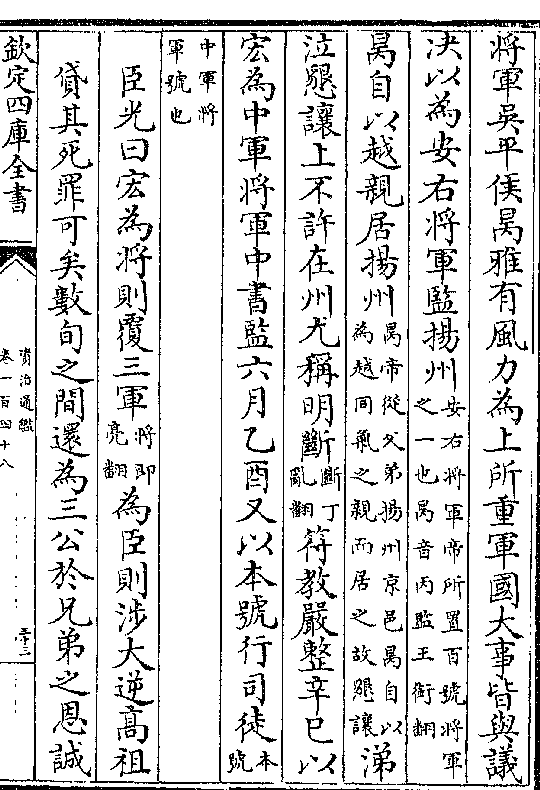 將軍吳平侯昺雅有風力為上所重軍國大事皆與議
決以為安右將軍監揚州安右將軍帝所置百號將軍
之一也昺音丙監工銜翻
昺自以越親居揚州昺帝從父弟揚州京邑昺自以
為越同氣之親而居之故懇讓涕
泣懇讓上不許在州尤稱明斷斷丁
亂翻符教嚴整辛巳以
宏為中軍將軍中書監六月乙酉又以本號行司徒本
號
中軍將
軍號也
臣光曰宏為將則覆三軍將即
亮翻為臣則涉大逆高祖
貸其死罪可矣數旬之間還為三公於兄弟之恩誠
欽定四庫全書
資治通鑑
卷一百四十八
三十三